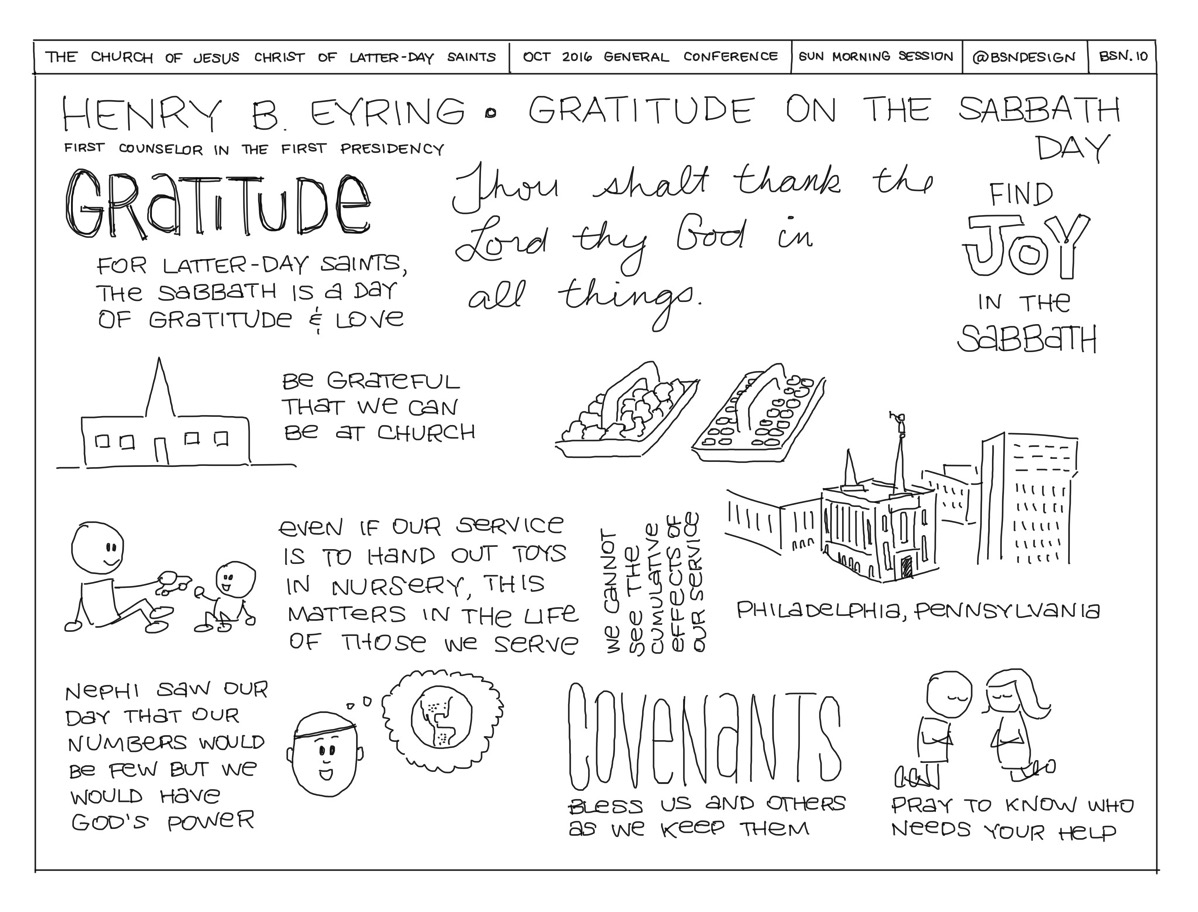 THE CHURCH OF JESUS CHRIST OF LATTER-DAY SAINTS
OCT 2016 GENERAL CONFERENCE
SUN MORNING SESSION
@BSNDESIGN
BSN.10
HENRY B. EYRING • GRATITUDE ON THE SABBATH
DAY
FIRST COUNSELOR IN THE FIRST PRESIDENCY
GRATITUDE
FOR LATTER-DAY SAINTS,
THE SABBATH IS A DAY
OF GRATITUDE & LOVE
Thou shalt thank the
Lord thy God in
all things.
FIND
JOY
IN THE
SABBATH
BE GRATEFUL
THAT WE CAN
BE AT CHURCH
EVEN IF OUR SERVICE
IS TO HAND OUT TOYS
IN NURSERY, THIS
MATTERS IN THE LIFE
OF THOSE WE SERVE
WE CANNOT
SEE THE
CUMULATIVE
EFFECTS OF
OUR SERVICE
PHILADELPHIA, PENNSYLVANIA
NEPHI SAW OUR
DAY THAT OUR
NUMBERS WOULD
BE FEW BUT WE
WOULD HAVE
GOD'S POWER
COVENANTS
BLESS US AND OTHERS
AS WE KEEP THEM
PRAY TO KNOW WHO
NEEDS YOUR HELP